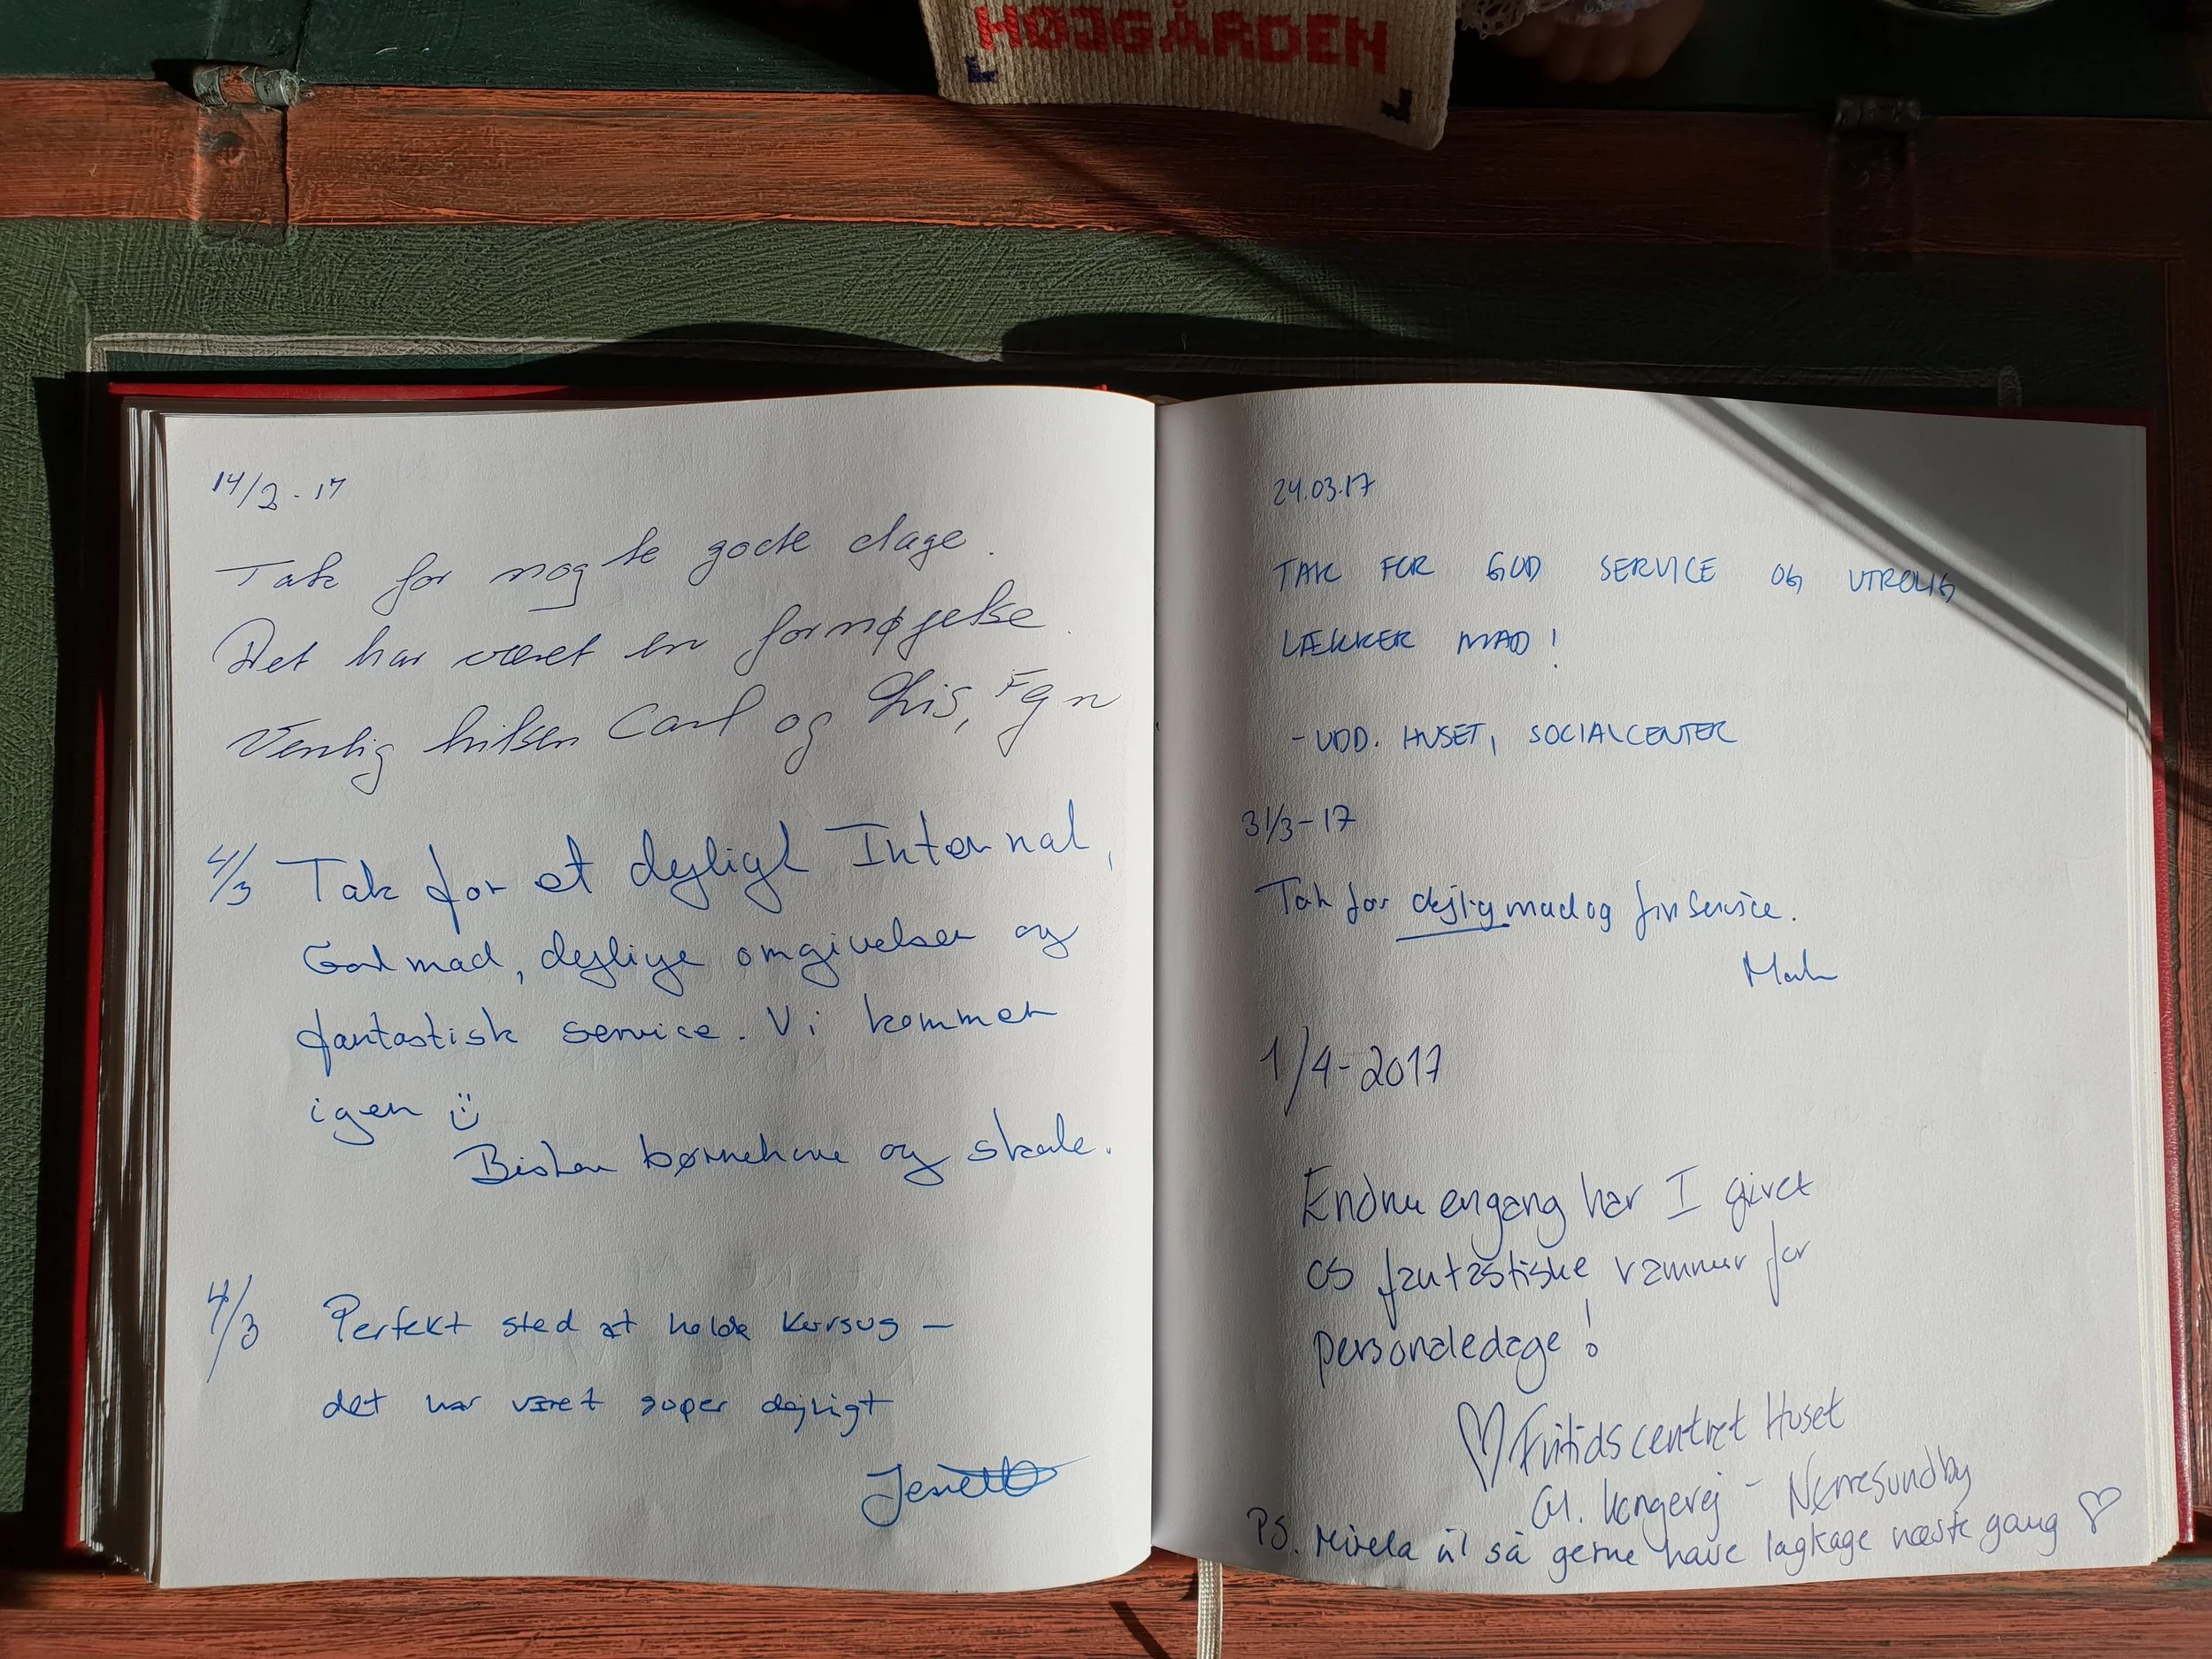 HØJGÅRDEN
14/2-17
Tak for nogle gode dage.
Det har været en fornøjelse.
Venlig hilsen Carl og Lis, Fgn
4/3 Tak for et dejligt Internat,
God mad, dejlige omgivelser og
fantastisk service. Vi kommer
igen
børnehave og skole.
4/3 Perfekt sted at holde kursus –
det har været super dejligt
24.03.17
TAK FOR GOD SERVICE OG UTROLIG
LÆKKER MAD!
- UDD. HUSET, SOCIALCENTER
31/3-17
Tak for dejlig mad og fin service.
1/4-2017
Endnu engang har I givet
os fantastiske rammer for
personaledage!
♡ Fritidscentret Huset
Gl. Kongevej - Nørresundby
PS. Mirela vil så gerne have lagkage næste gang ♡